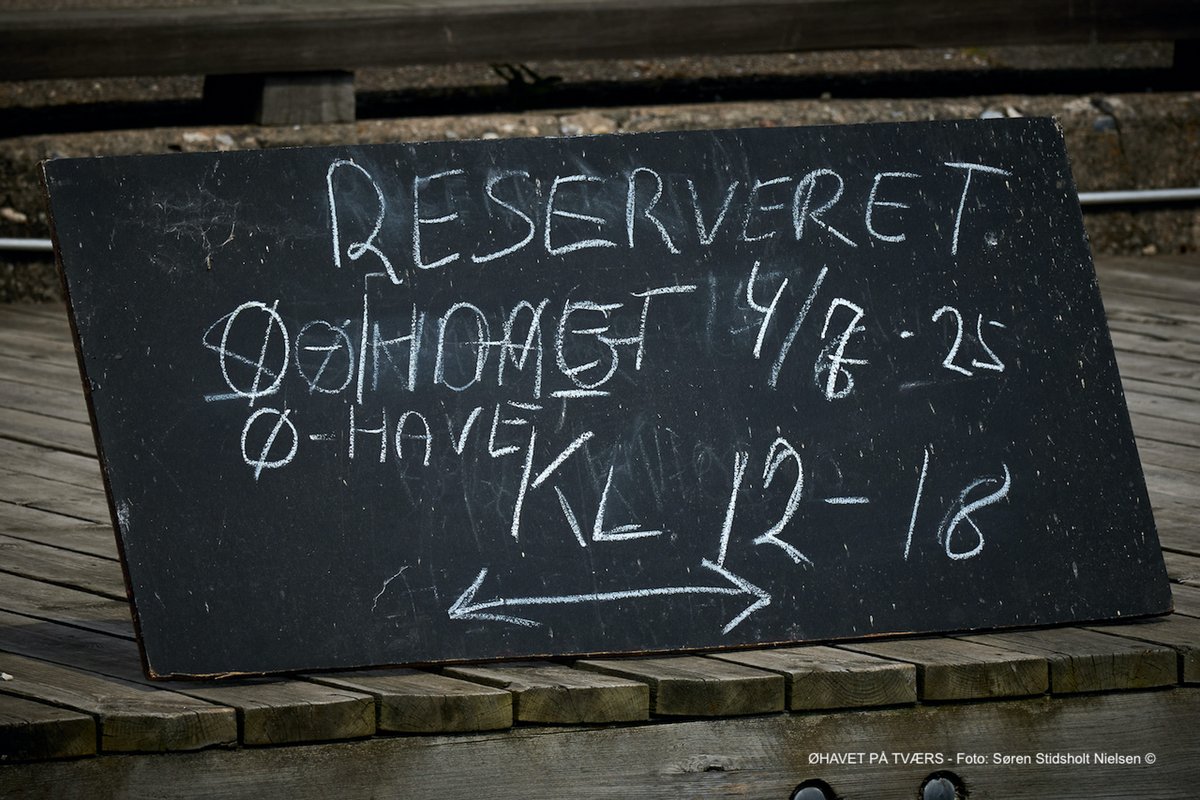 RESERVERET
4/8-25
Ø-HAVET
KL 12-18
ØHAVET PÅ TVÆRS - Foto: Søren Stidsholt Nielsen ©